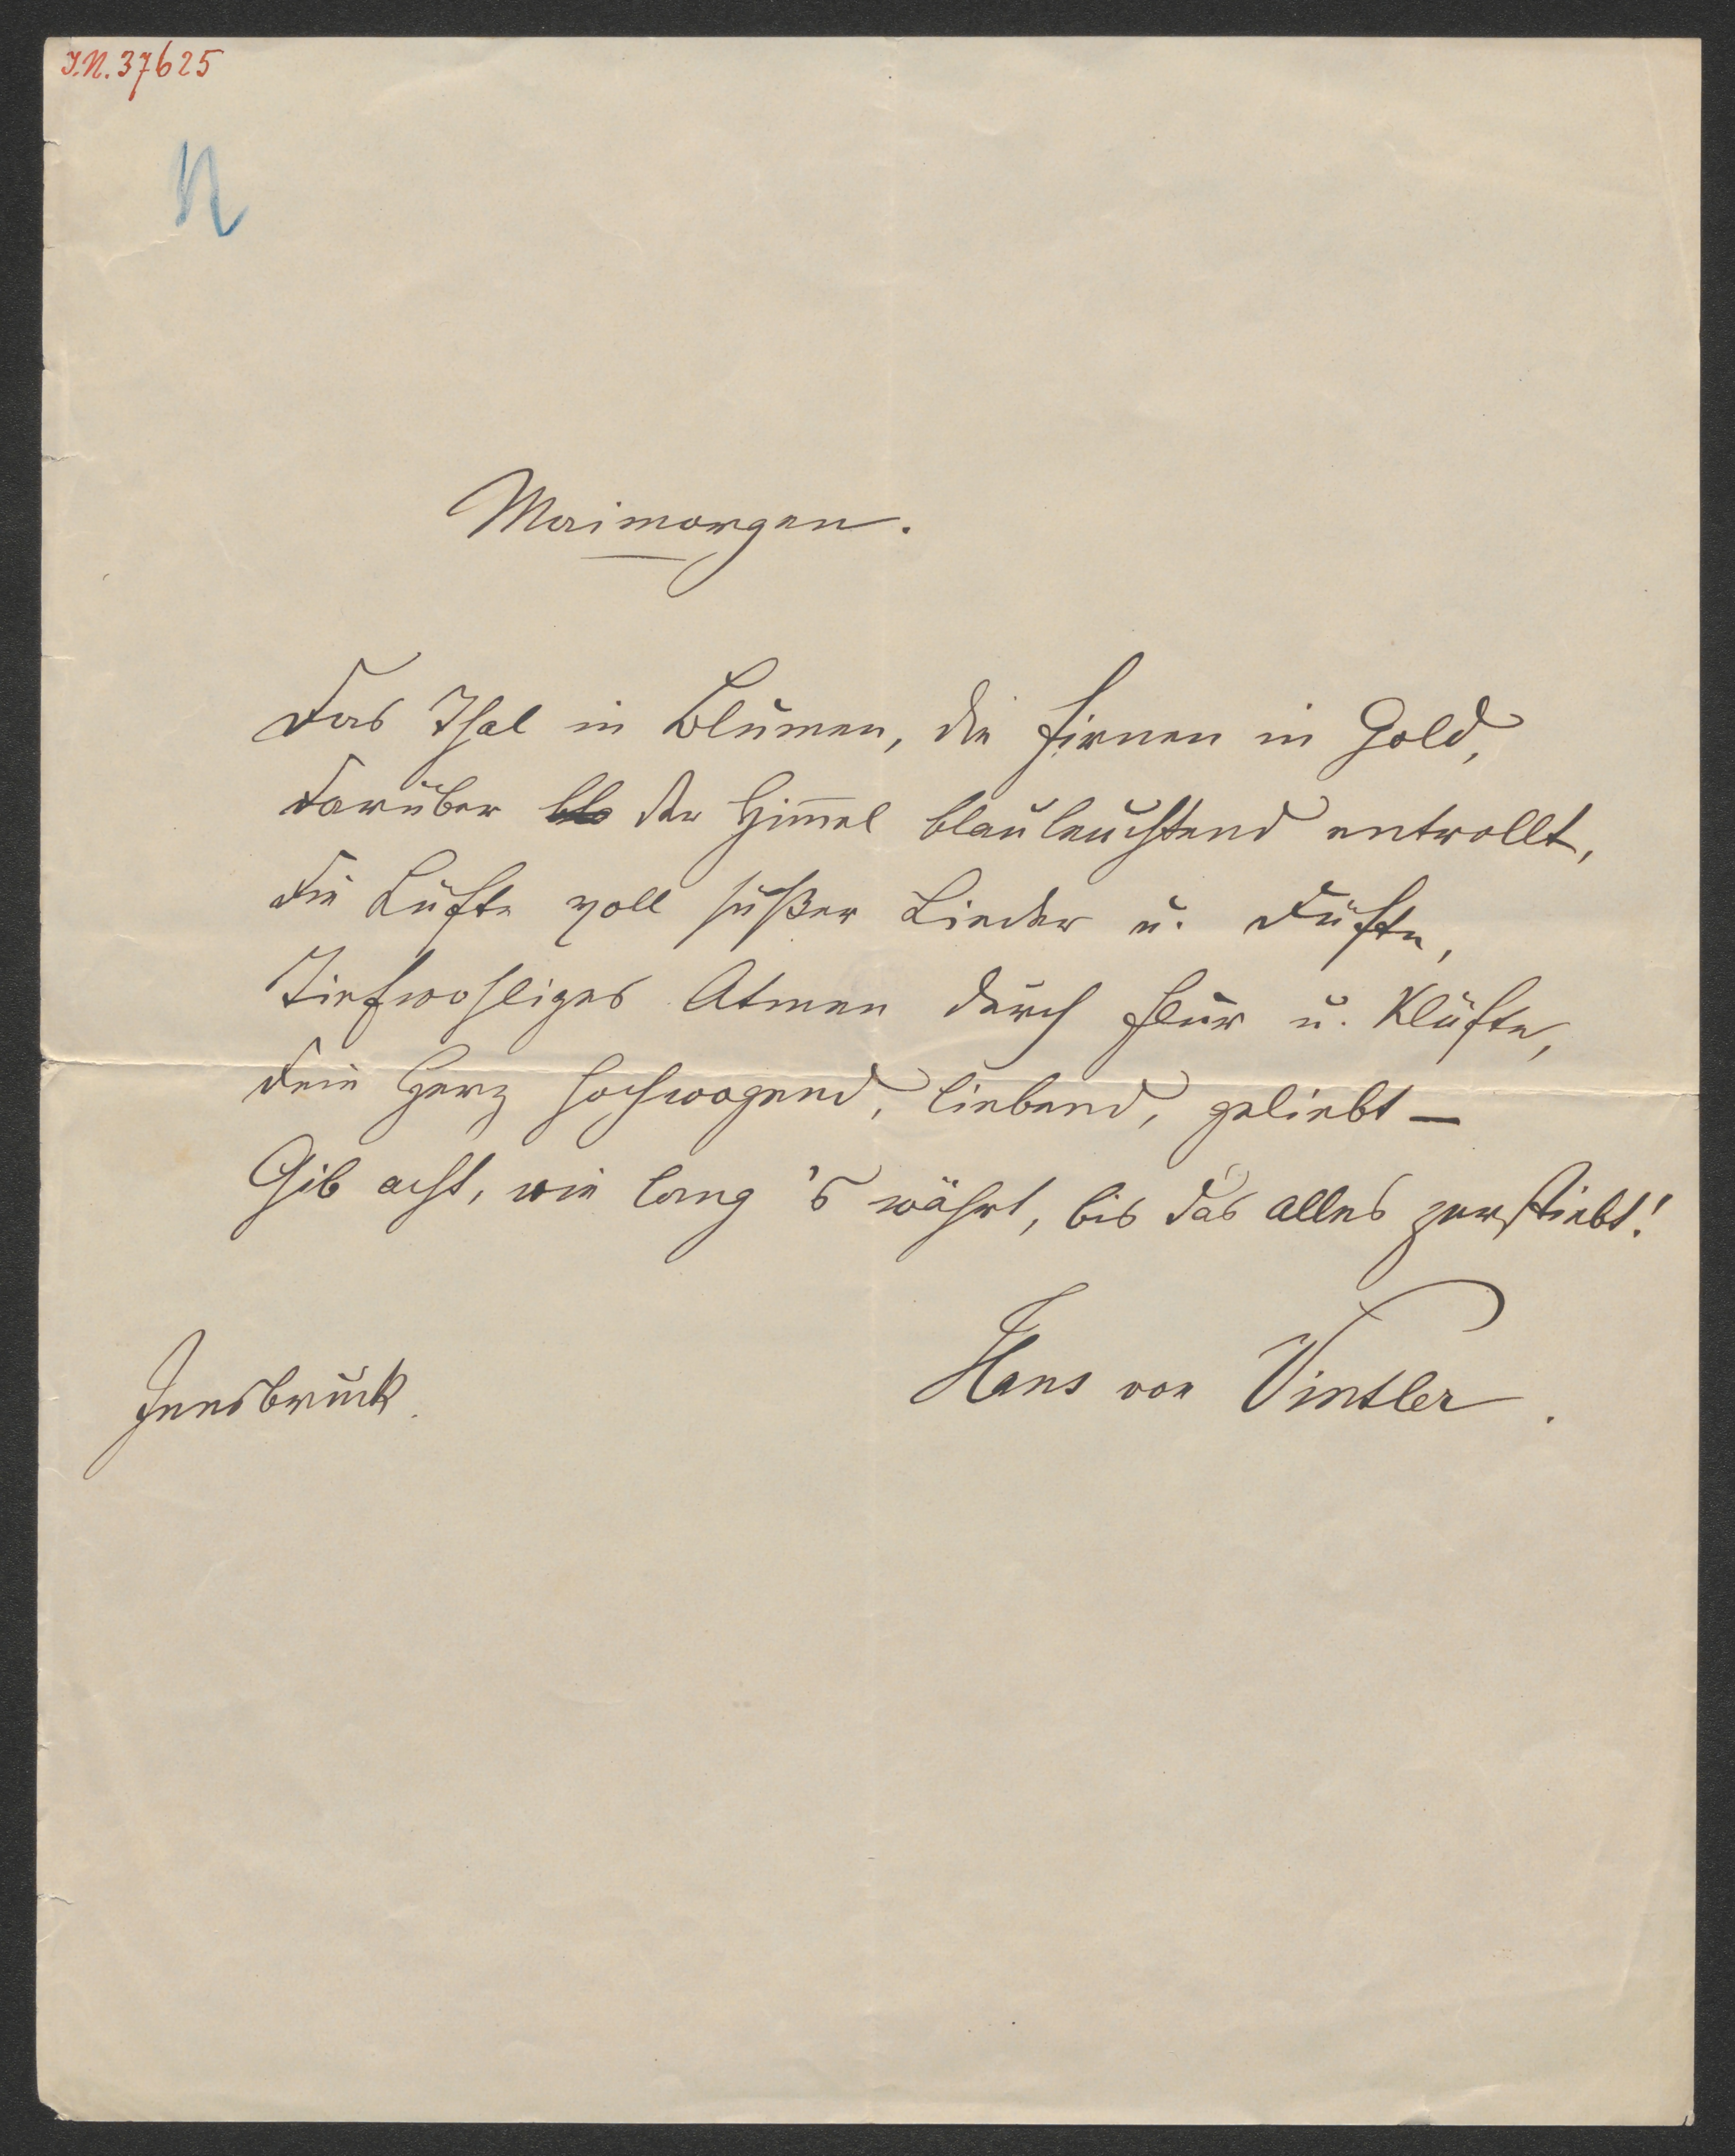 J.N. 37625
N
Maimorgen.
Das Thal in Blumen, die Firnen in Gold,
Darüber der Himmel blauleuchtend entrollt,
Die Lüfte voll süßer Lieder u. Düfte,
Tiefwohliges Atmen durch Flur u. Klüfte,
Dein Herz hochwogend, liebend, geliebt –
Gib acht, wie lang 's währt, bis das alles zerstiebt!
Hans von Vintler.
Innsbruck.